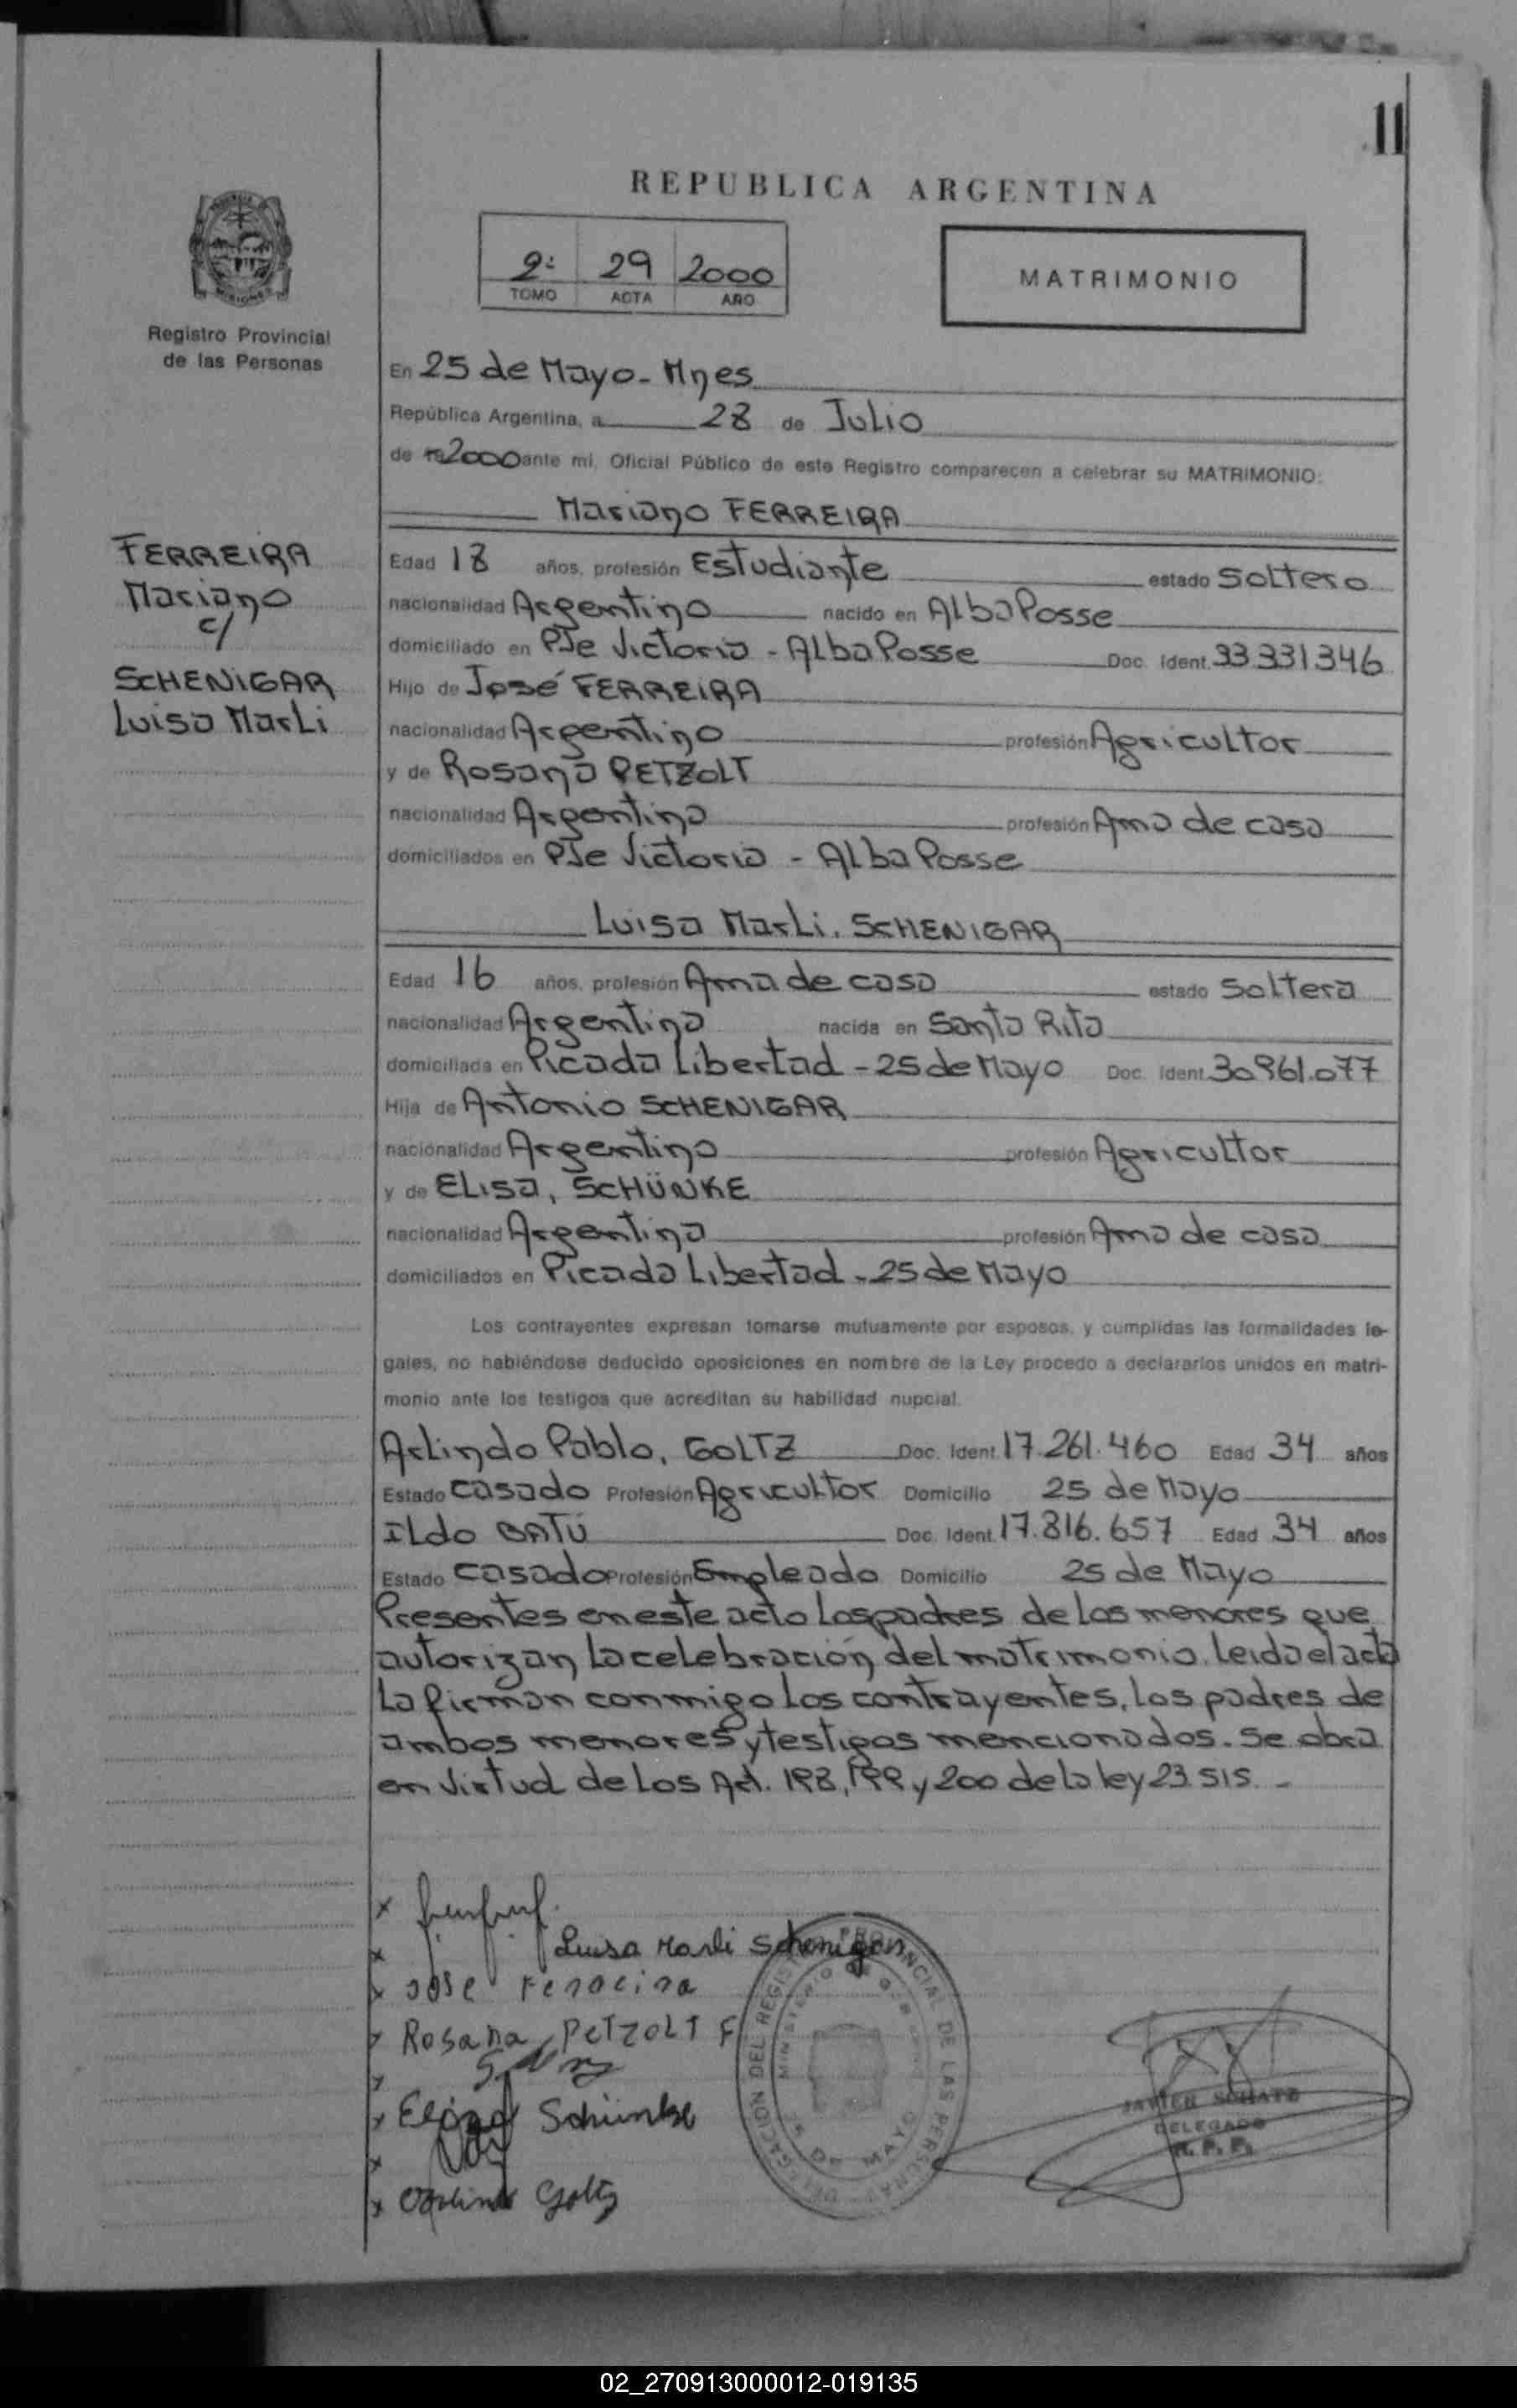 11
REPUBLICA ARGENTINA
2º 29 2000
TOMO ACTA AÑO
MATRIMONIO
Registro Provincial
de las Personas
En 25 de Mayo - Mnes
República Argentina, a 28 de Julio
de 19 2000 ante mi, Oficial Público de este Registro comparecen a celebrar su MATRIMONIO:
Mariano FERREIRA
FERREIRA
Mariano
c/
SCHENIGAR
Luisa Marli
Edad 18 años, profesión Estudiante estado Soltero
nacionalidad Argentino nacido en Alba Posse
domiciliado en Pje Victoria - Alba Posse Doc. Ident. 33.331.346
Hijo de José FERREIRA
nacionalidad Argentino profesión Agricultor
y de Rosana PETZOLT
nacionalidad Argentina profesión Ama de casa
domiciliados en Pje Victoria - Alba Posse
Luisa Marli, SCHENIGAR
Edad 16 años, profesión Ama de casa estado Soltera
nacionalidad Argentina nacida en Santa Rita
domiciliada en Picada Libertad - 25 de Mayo Doc. Ident. 30.961.077
Hija de Antonio SCHENIGAR
nacionalidad Argentino profesión Agricultor
y de ELisa, SCHÜNKE
nacionalidad Argentina profesión Ama de casa
domiciliados en Picada Libertad - 25 de Mayo
Los contrayentes expresan tomarse mutuamente por esposos, y cumplidas las formalidades le-
gales, no habiéndose deducido oposiciones en nombre de la Ley procedo a declararlos unidos en matri-
monio ante los testigos que acreditan su habilidad nupcial.
Arlindo Pablo, GOLTZ Doc. Ident. 17.261.460 Edad 34 años
Estado Casado Profesión Agricultor Domicilio 25 de Mayo
ILdo BATÚ Doc. Ident. 17.816.657 Edad 34 años
Estado Casado Profesión Empleado Domicilio 25 de Mayo
Presentes en este acto Los padres de los menores que
autorizan La celebración del matrimonio. Leida el acta
La firman conmigo Los contrayentes, Los padres de
ambos menores y testigos mencionados. Se obra
en virtud de Los Art. 198, 199 y 200 de la ley 23.515. -
Luisa Marli Schenigar
José Ferreira
Rosana PETZOLT F
Elisa Schünke
Arlindo Goltz
DELEGACION DEL REGISTRO PROVINCIAL DE LAS PERSONAS
MINISTERIO DE GOBIERNO
25 DE MAYO
JAVIER SCHATZ
DELEGADO
R. P. P.
02_270913000012-019135